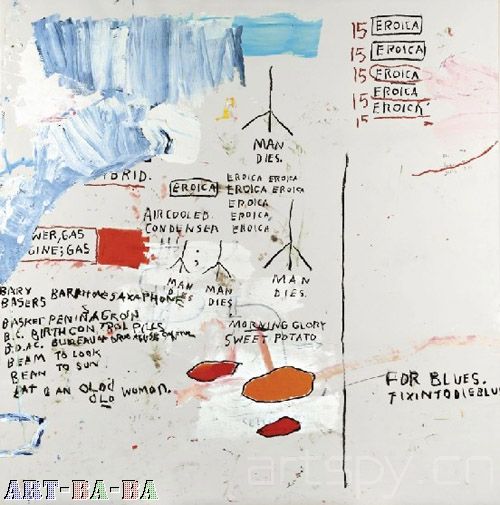 15 EROICA
15 EROICA
15 EROICA
15 EROICA
15 EROICA
15
MAN
DIES.
YBRID.
EROICA
EROICA EROICA
EROICA EROICA
EROICA
EROICA
EROICA.
AIRCOOLED
CONDENSER
WER, GAS
GINE; GAS
MAN
DIES
MAN
DIES
MAN
DIES.
BARY
BASERS BARITONE SAXAPHONE
BASKET PENINAGRON
B.C. BIRTHCONTROL PILLS
B.D.A.C. BUREAU OF DRUG ABUSE CONTROL
BEAM TO LOOK
BEAN TO SUN
EAT IS AN OLD
OLD WOMAN.
MORNING GLORY
SWEET POTATO
FOR BLUES.
FIXINTODIEBLU
artspy.cn
ART-BA-BA